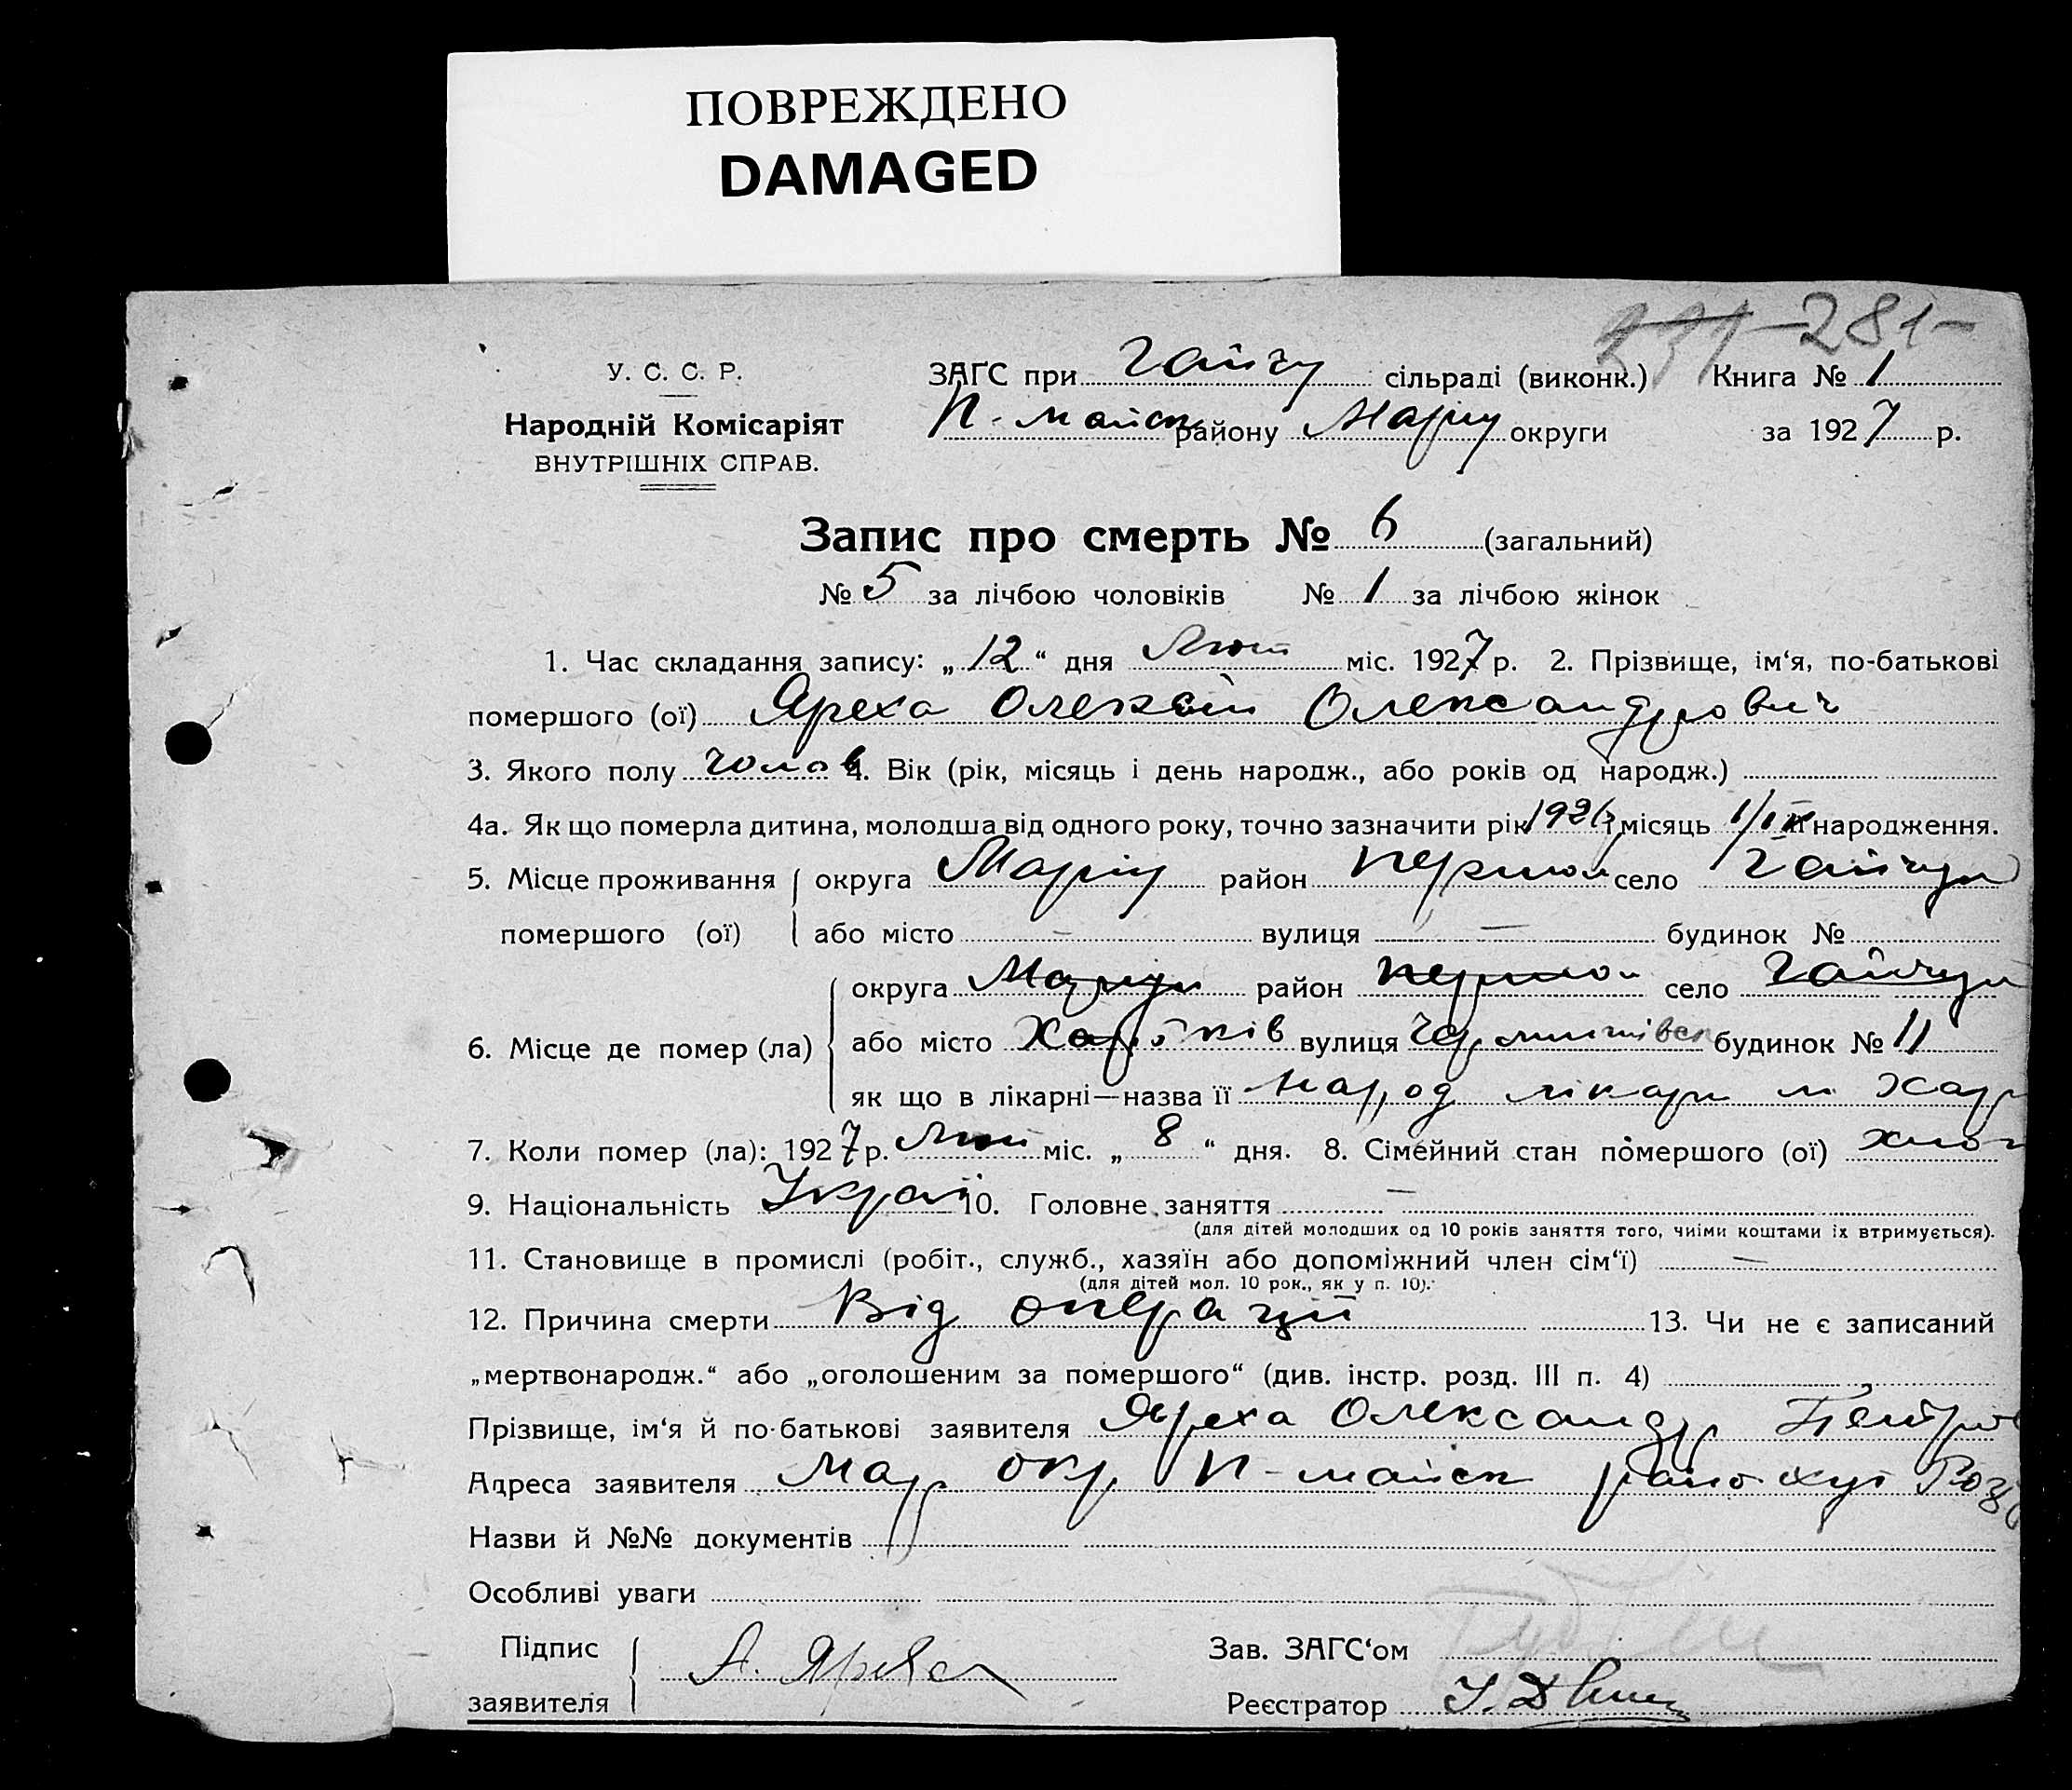 ПОВРЕЖДЕНО
DAMAGED
-281-
У. С. С. Р. ЗАГС при Гайчу сільраді (виконк.) Книга № 1
Народній Комісаріят П.-майск району Маріу округи за 1927 р.
ВНУТРІШНІХ СПРАВ.
Запис про смерть № 6 (загальний)
№ 5 за лічбою чоловіків № 1 за лічбою жінок
1. Час складання запису: „12“ дня Лют міс. 1927 р. 2. Прізвище, ім‘я, по-батькові
помершого (ої) Яреха Олексій Олександрович
3. Якого полу чолов 4. Вік (рік, місяць і день народж., або років од народж.)
4а. Як що померла дитина, молодша від одного року, точно зазначити рік 1926 і місяць народження.
5. Місце проживання округа Маріу район Першом село Гайчул
помершого (ої) або місто — вулиця — будинок №
округа Маріу район Першом село Гайчул
6. Місце де помер (ла) або місто Харьків вулиця будинок № 11
як що в лікарні—назва її Народ лікарн м Харь
7. Коли помер (ла): 1927 р. Лют міс. „8“ дня. 8. Сімейний стан помершого (ої) хлоп
9. Національність Украї 10. Головне заняття —
(для дітей молодших од 10 років заняття того, чиіми коштами їх втримується).
11. Становище в промислі (робіт., служб., хазяїн або допоміжний член сім‘ї) —
(для дітей мол. 10 рок., як у п. 10).
12. Причина смерти Від операції 13. Чи не є записаний
„мертвонародж.“ або „оголошеним за помершого“ (див. інстр. розд. III п. 4)
Прізвище, ім‘я й по-батькові заявителя Яреха Олександр Петров
Адреса заявителя Мар окр П-майск райо хут Роз
Назви й №№ документів
Особливі уваги
Підпис А. Яреха Зав. ЗАГС‘ом
заявителя Реєстратор